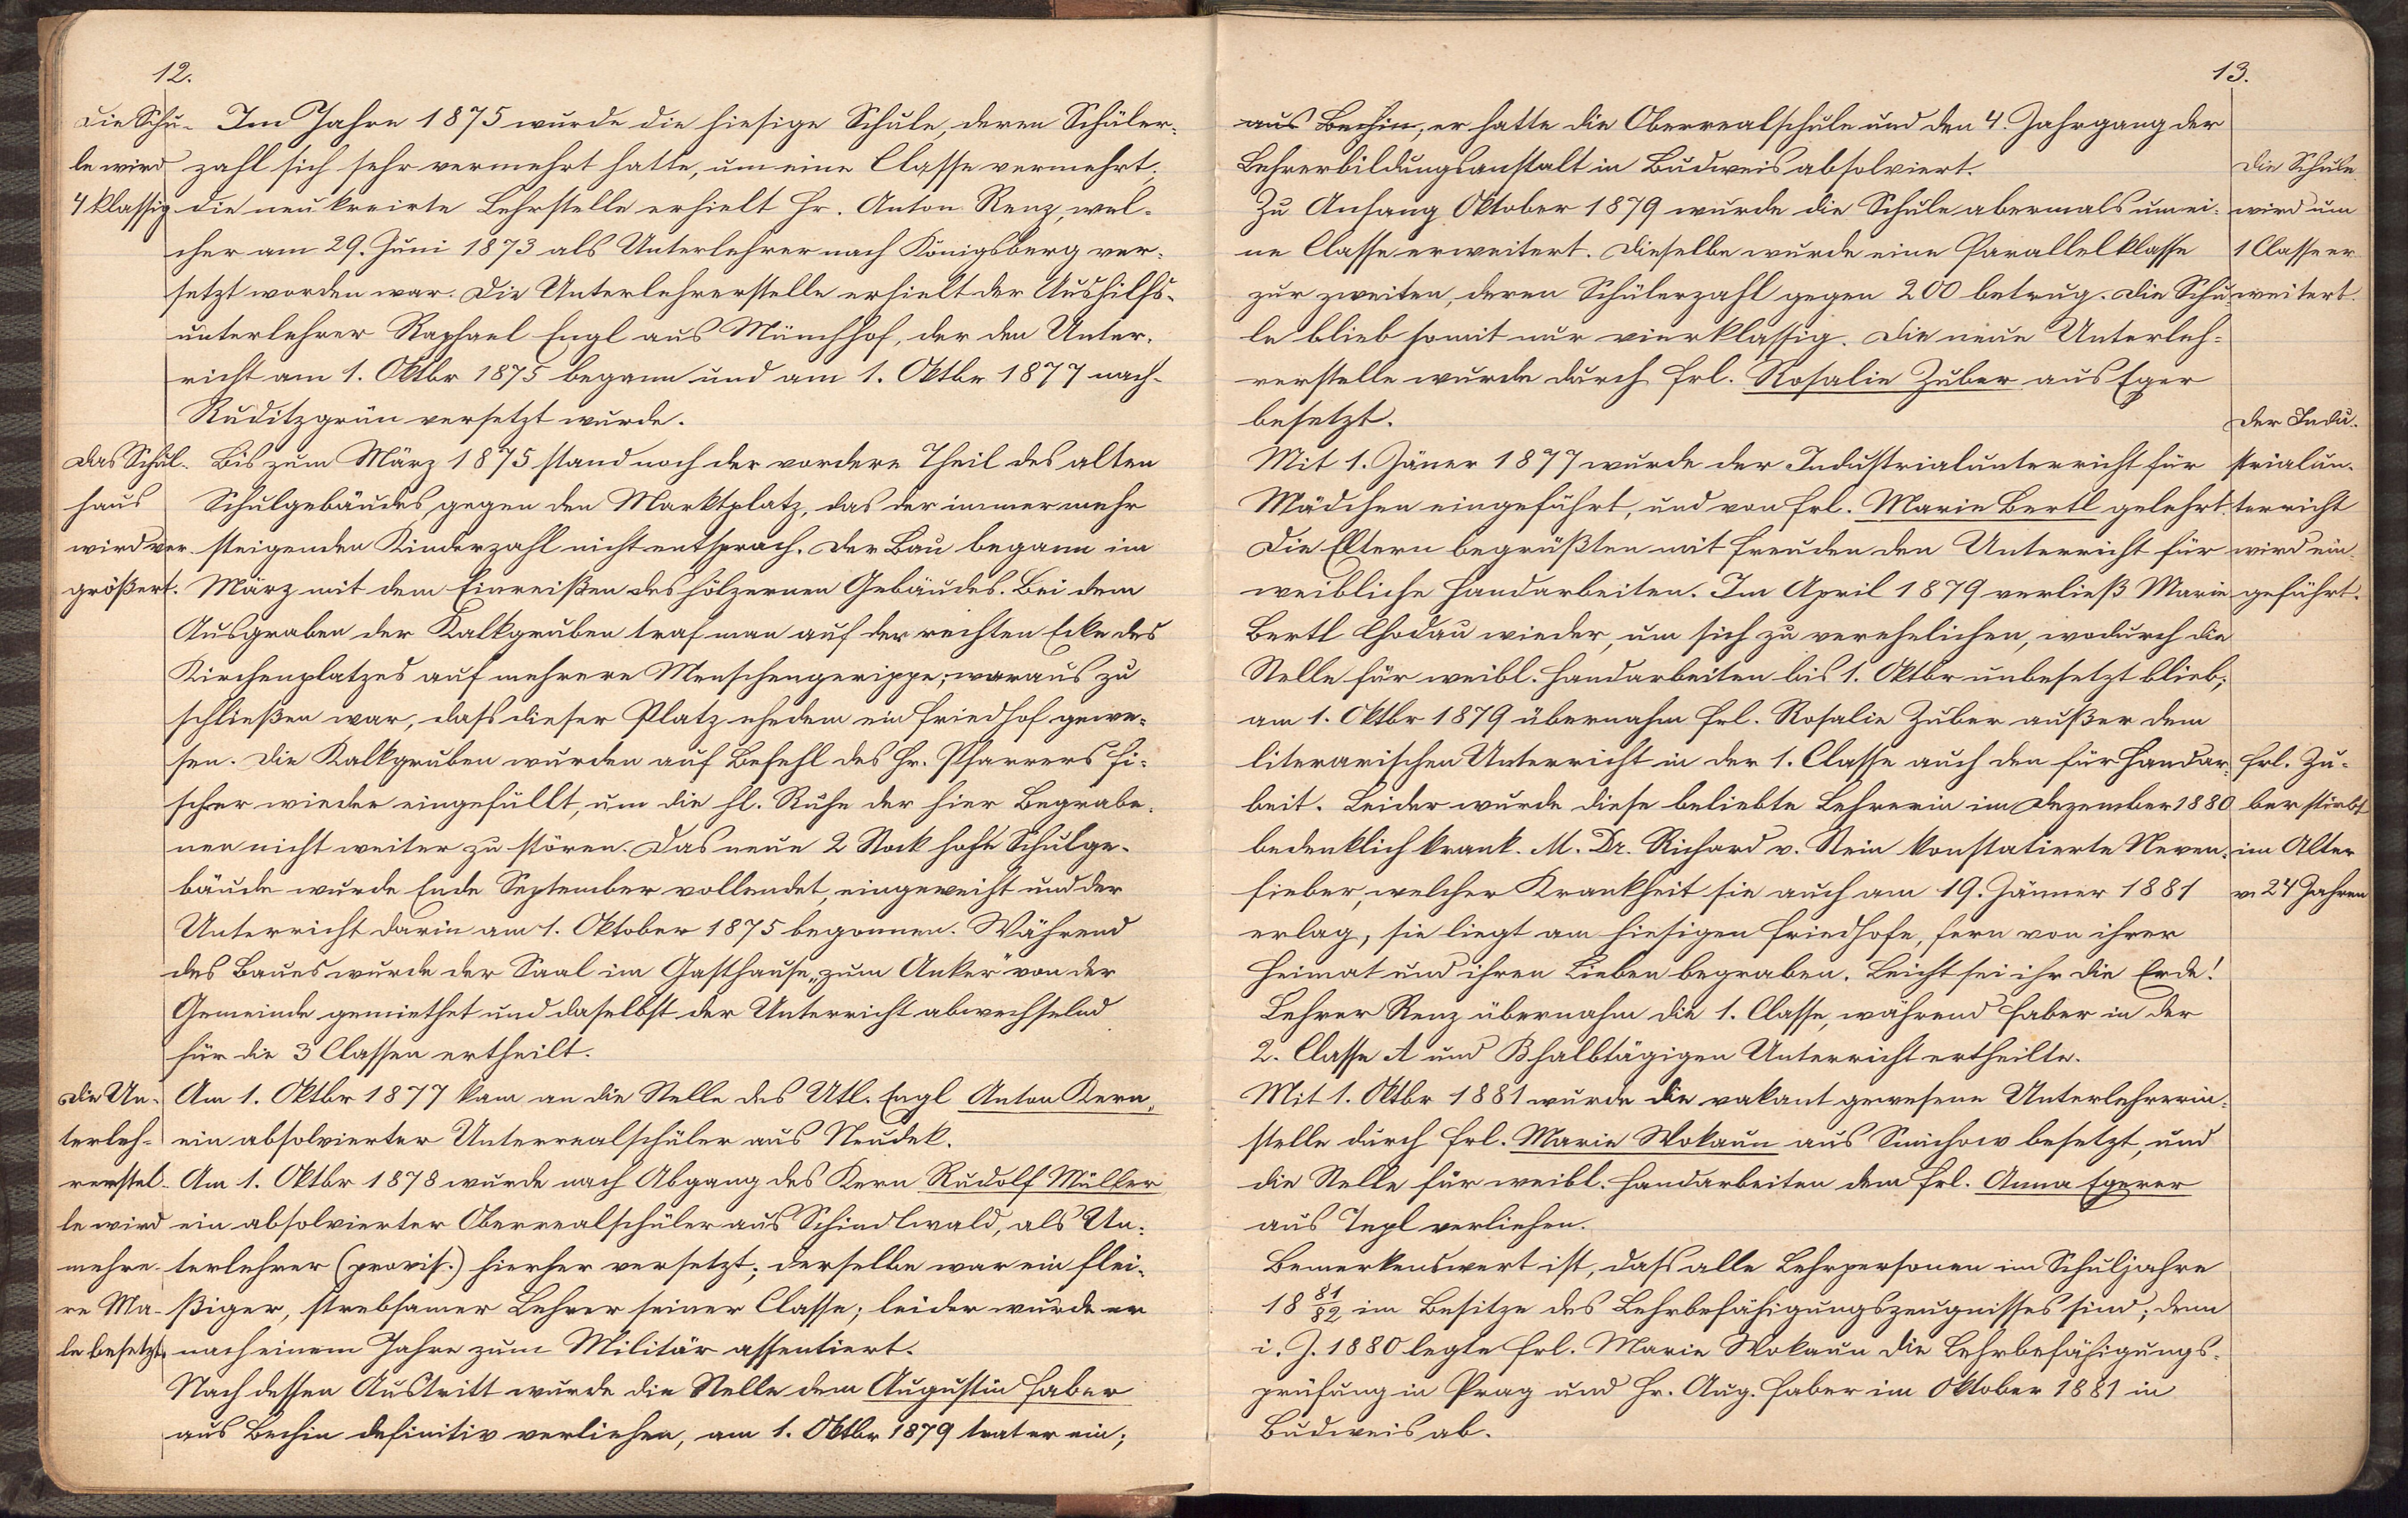 12.
Die Schu-
le wird
4 klassig
Im Jahre 1875 wurde die hiesige Schule, deren Schüler-
zahl sich sehr vermehrt hatte, um eine Classe vermehrt;
die neu kreirte Lehrstelle erhielt Hr. Anton Renz, wel-
cher am 29. Juni 1873 als Unterlehrer nach Königsberg ver-
setzt worden war. Die Unterlehrerstelle erhielt der Aushilfs-
unterlehrer Raphael Engl aus Münchhof, der den Unter-
richt am 1. Oktbr 1875 begann und am 1. Oktbr 1877 nach
Ruditzgrün versetzt wurde.
Das Schul-
haus
wird ver-
größert.
Bis zum März 1875 stand noch der vordere Theil des alten
Schulgebäudes gegen den Marktplatz, das der immer mehr
steigenden Kinderzahl nicht entsprach. Der Bau begann im
März mit dem Einreißen des hölzernen Gebäudes. Bei dem
Ausgraben der Kalkgruben traf man auf der rechten Ecke des
Kirchenplatzes auf mehrere Menschengerippe; woraus zu
schließen war, dass dieser Platz ehedem ein Friedhof gewe-
sen. Die Kalkgruben wurden auf Befehl des Hr. Pfarrers Fi-
scher wieder eingefüllt, um die hl. Ruhe der hier Begrabe-
nen nicht weiter zu stören. Das neue 2 Stock hohe Schulge-
bäude wurde Ende September vollendet, eingeweiht und der
Unterricht darin am 1. Oktober 1875 begonnen. Während
des Baues wurde der Saal im Gasthause „zum Anker“ von der
Gemeinde gemiethet und daselbst der Unterricht abwechselnd
für die 3 Classen ertheilt.
Die Un-
terleh-
rerstel-
le wird
mehre-
re Ma-
le besetzt.
Am 1. Oktbr 1877 kam an die Stelle des Utl. Engl Anton Kern,
ein absolvierter Unterrealschüler aus Neudek.
Am 1. Oktbr 1878 wurde nach Abgang des Kern Rudolf Müller
ein absolvierter Oberrealschüler aus Schindlwald, als Un-
terlehrer (provis.) hierher versetzt; derselbe war ein flei-
ßiger, strebsamer Lehrer seiner Classe; leider wurde er
nach einem Jahre zum Militär assentiert.
Nach dessen Austritt wurde die Stelle dem Augustin Faber
aus Bechin definitiv verliehen, am 1. Oktbr 1879 trat er ein;
13.
aus Bechin, er hatte die Oberrealschule und den 4. Jahrgang der
Lehrerbildungsanstalt in Budweis absolviert.
Zu Anfang Oktober 1879 wurde die Schule abermals um ei-
ne Classe erweitert. Dieselbe wurde eine Parallelklasse
zur zweiten, deren Schülerzahl gegen 200 betrug. Die Schu-
le blieb somit nur vierklassig. Die neue Unterleh-
rerstelle wurde durch Frl. Rosalie Zuber aus Eger
besetzt.
Die Schule
wird um
1 Classe er
weitert.
Mit 1. Jäner 1877 wurde der Industrialunterricht für
Mädchen eingeführt, und von Frl. Marie Bertl gelehrt.
Die Eltern begrüßten mit Freuden den Unterricht für
weibliche Handarbeiten. Im April 1879 verließ Marie
Bertl Chodau wieder, um sich zu verehelichen, wodurch die
Stelle für weibl. Handarbeiten bis 1. Oktbr unbesetzt blieb;
am 1. Oktbr 1879 übernahm Frl. Rosalie Zuber außer dem
literarischen Unterricht in der 1. Classe auch den für Handar-
beit. Leider wurde diese beliebte Lehrerin im Dezember 1880
bedenklich krank. M. Dr. Richard v. Stein konstatierte Nerven-
fieber, welcher Krankheit sie auch am 19. Jänner 1881
erlag; sie liegt am hiesigen Friedhofe, fern von ihrer
Heimat und ihren Lieben begraben. Leicht sei ihr die Erde!
Der Indu-
strialun-
terricht
wird ein-
geführt.
Frl. Zu-
ber stirbt
im Alter
v. 24 Jahren
Lehrer Renz übernahm die 1. Classe, während Faber in der
2. Classe A und B halbtägigen Unterricht ertheilte.
Mit 1. Oktbr 1881 wurde die vakant gewesene Unterlehrerin-
stelle durch Frl. Marie Wokaun aus Smichow besetzt, und
die Stelle für weibl. Handarbeiten dem Frl. Anna Egerer
aus Tepl verliehen.
Bemerkenswert ist, dass alle Lehrpersonen im Schuljahre
18 81/82 im Besitze des Lehrbefähigungszeugnisses sind; denn
i. J. 1880 legte Frl. Marie Wokaun die Lehrbefähigungs-
prüfung in Prag und Hr. Aug. Faber im Oktober 1881 in
Budweis ab.